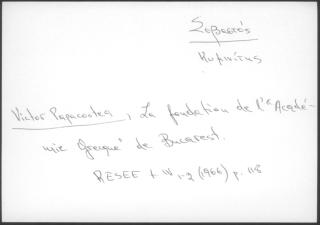 Σεβαστός
Κυμινήτης
Victor Papacostea, La fondation de l'"Acadé-
mie Grecque" de Bucarest.
RESEE t. IV 1-2 (1966) p. 115